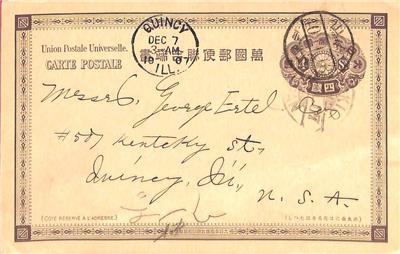 QUINCY
DEC 7
3-AM
19 07
ILL.
Union Postale Universelle.
CARTE POSTALE
萬國郵便聯合端書
四錢
Messrs. George Ertel
#507 Kentcky st,
Quincy, Ill,
U. S. A.
(CÔTÉ RÉSERVÉ À L'ADRESSE.)